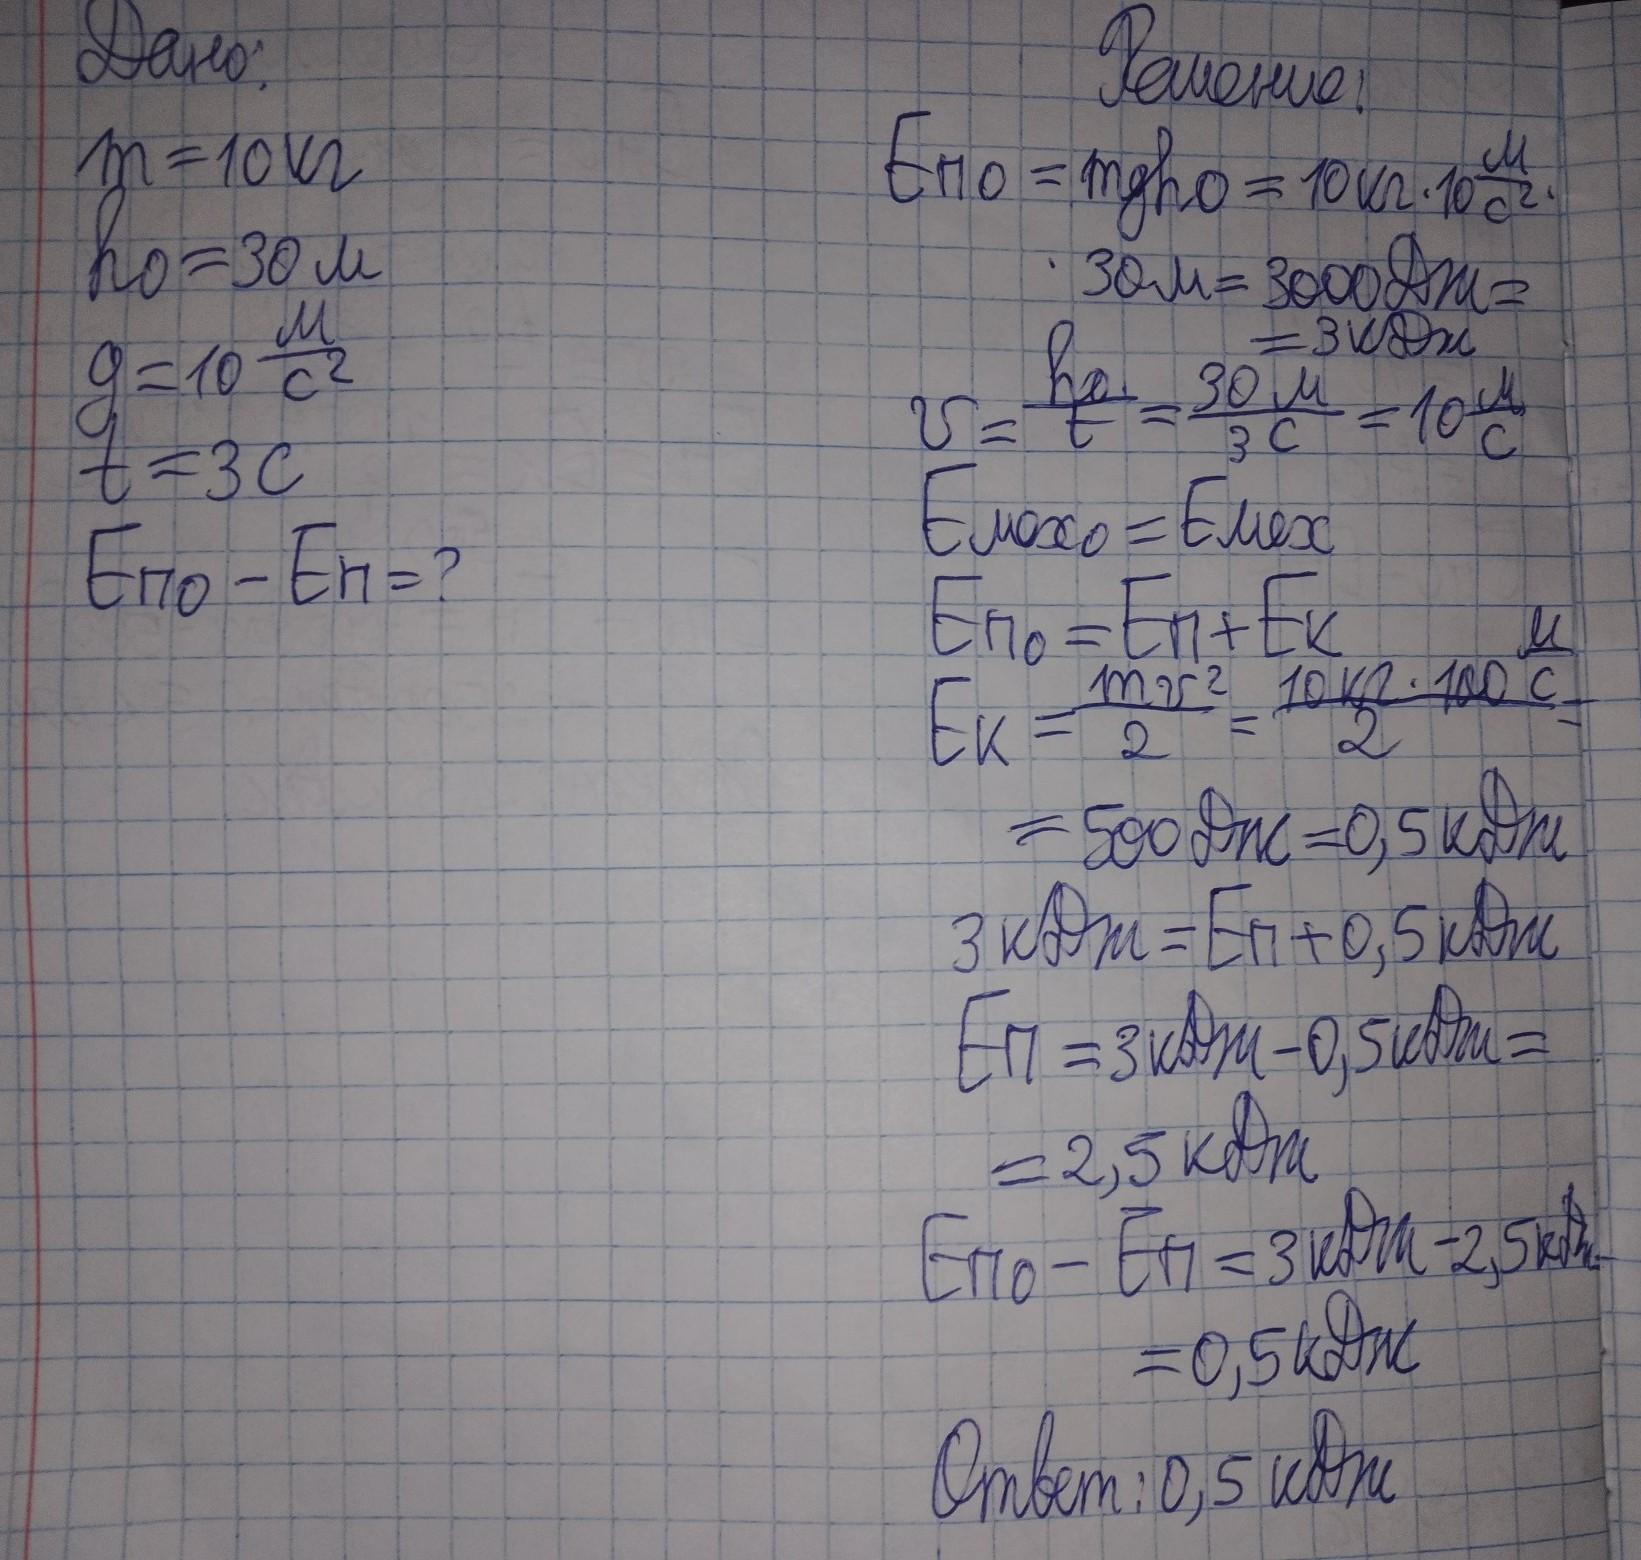 Дано:
m = 10 кг
h₀ = 30 м
g = 10 м/с²
t = 3 с
Eп₀ - Eп = ?
Решение:
Eп₀ = mgh₀ = 10 кг · 10 м/с² ·
· 30 м = 3000 Дж =
= 3 кДж
v = h₀/t = 30 м/3 с = 10 м/с
Eмех₀ = Eмех
Eп₀ = Eп + Eк
Eк = mv²/2 = 10 кг · 100 м/с/2 =
= 500 Дж = 0,5 кДж
3 кДж = Eп + 0,5 кДж
Eп = 3 кДж - 0,5 кДж =
= 2,5 кДж
Eп₀ - Eп = 3 кДж - 2,5 кДж
= 0,5 кДж
Ответ: 0,5 кДж